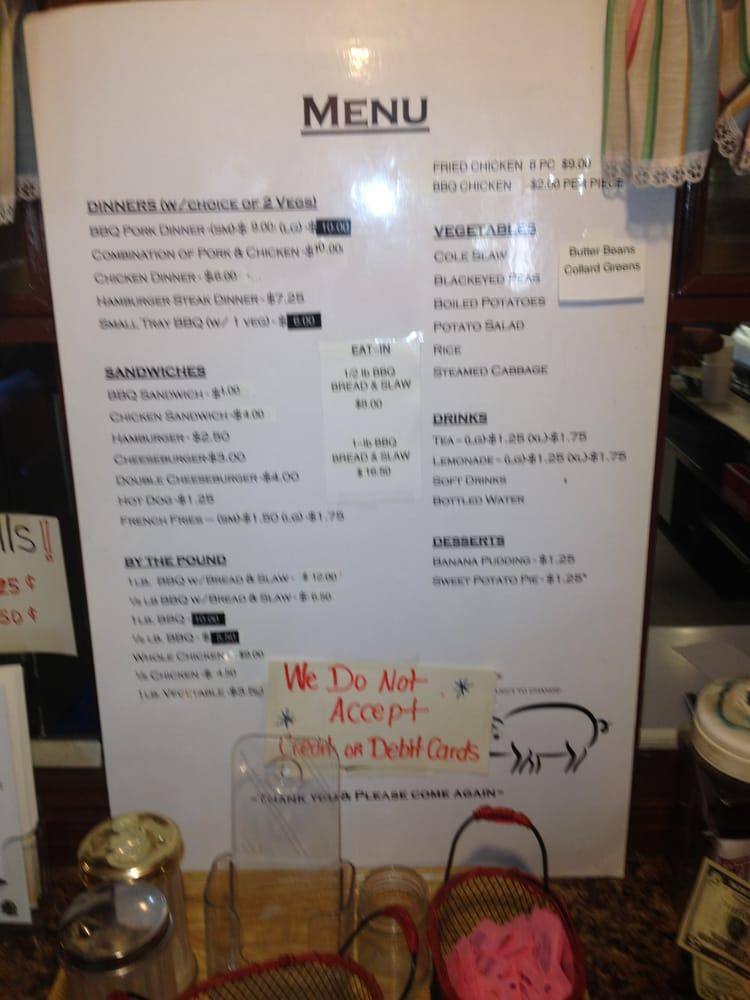 MENU
FRIED CHICKEN 8 PC $9.00
BBQ CHICKEN $2.00 PER PIECE
DINNERS (W/CHOICE OF 2 VEGS)
BBQ PORK DINNER-(SM)-$ 9.00 (LG)-$ 10.00
COMBINATION OF PORK & CHICKEN-$10.00
CHICKEN DINNER-$
HAMBURGER STEAK DINNER-$7.25
SMALL TRAY BBQ (W/ 1 VEG)-$ 6.00
SANDWICHES
BBQ SANDWICH-
CHICKEN SANDWICH-$4.00
HAMBURGER-$2.50
CHEESEBURGER-$3.00
DOUBLE CHEESEBURGER-$4.00
HOT DOG-$1.25
FRENCH FRIES – (SM)-$1.50 (LG)-$1.75
EAT-IN
1/2 lb BBQ
BREAD & SLAW
1-lb BBQ
BREAD & SLAW
$16.50
BY THE POUND
1 LB. BBQ W/BREAD & SLAW- $12.00
½ LB BBQ W/BREAD & SLAW-$ 6.50
1 LB. BBQ 10.00
½ LB. BBQ-$ 5.50
WHOLE CHICKEN $9.00
½ CHICKEN-$ 4.50
1 LB. VEGETABLE-$3.50
VEGETABLES
COLE SLAW
BLACKEYED PEAS
BOILED POTATOES
POTATO SALAD
RICE
STEAMED CABBAGE
Butter Beans
Collard Greens
DRINKS
TEA – (LG)-$1.25 (XL)-$1.75
LEMONADE – (LG)-$1.25 (XL)-$1.75
SOFT DRINKS
BOTTLED WATER
DESSERTS
BANANA PUDDING-$1.25
SWEET POTATO PIE-$1.25
TO CHANGE
We Do Not
Accept
Credit or Debit Cards
~THANK YOU & PLEASE COME AGAIN~
lls!
25¢
50¢